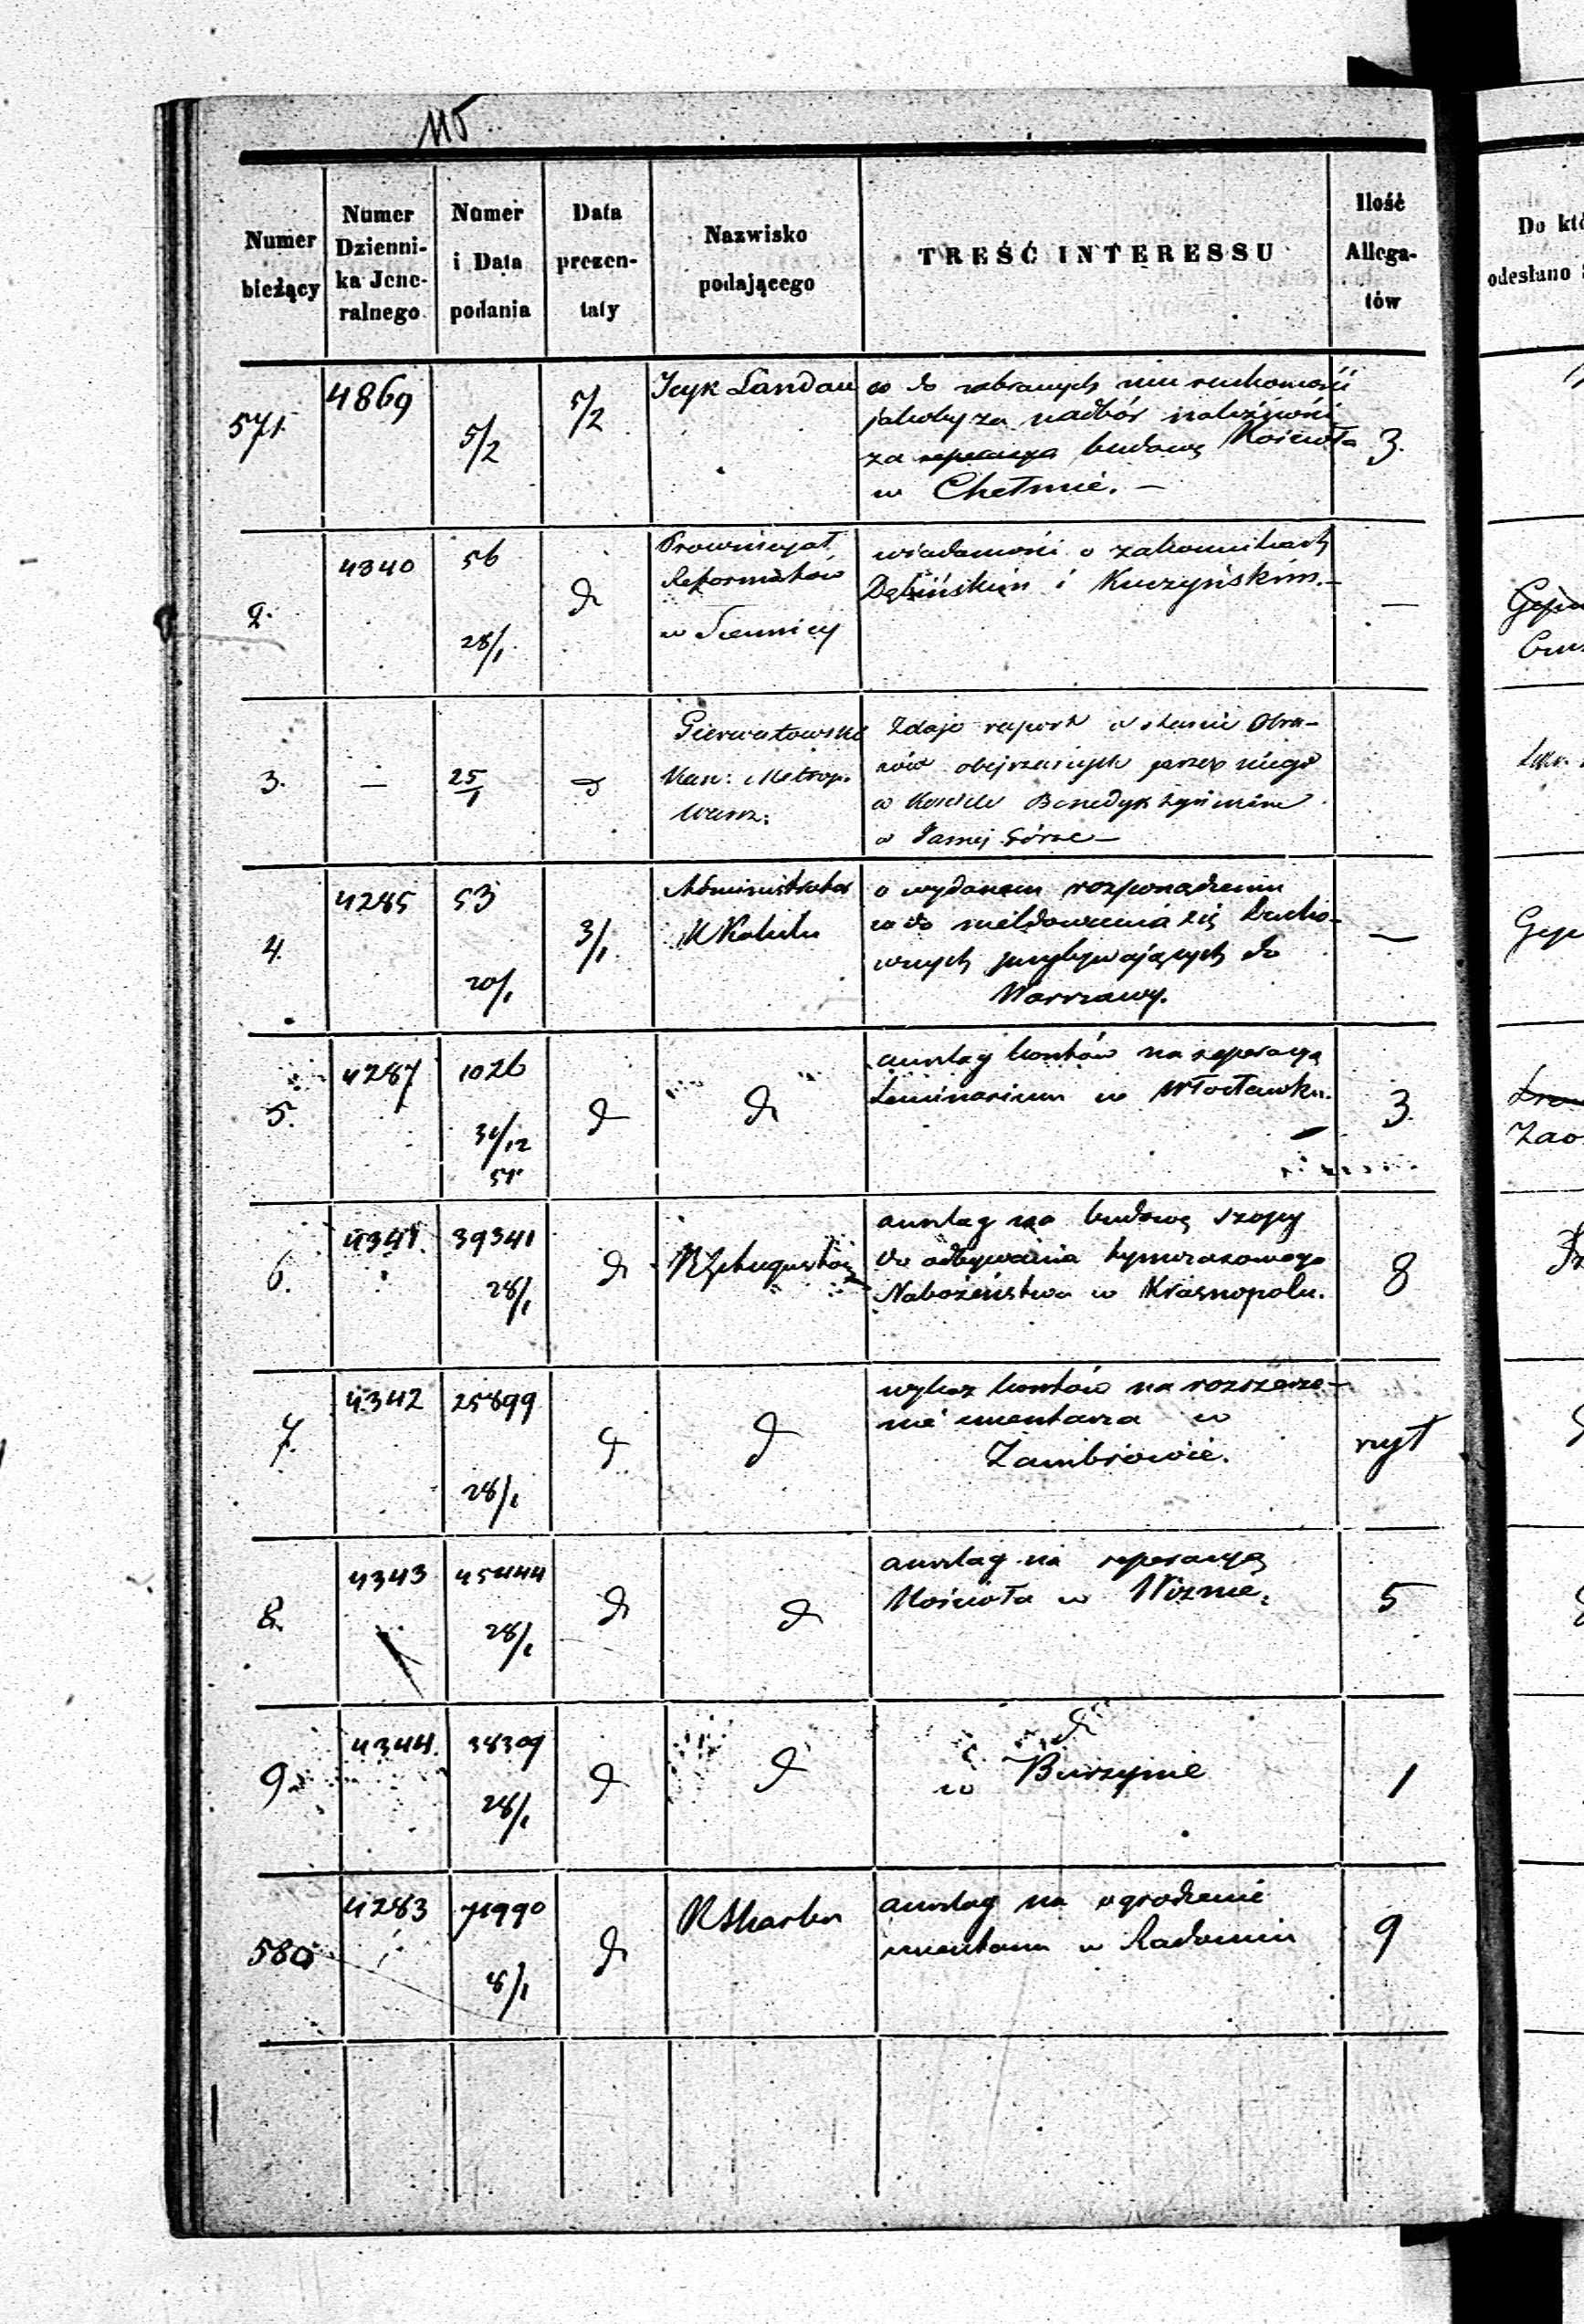 115
Numer bieżący
Numer Dzienni- ka Jene- ralnego
Numer i Data podania
Data prezen- taty
Nazwisko podającego
TREŚĆ INTERESSU
Ilość Allega- tów
571.
4869
5/2
5/2
Icyk Landau
co do zabranych mu ruchomości
jakoby za nadbór należności
za reperacyą budowę Kościoła
w Chełmie. —
3.
2.
4340
56
28/1
d
Prowincyał
Reformatów
w Siennicy
wiadomości o zakonnikach
i Kuczyńskim. —
—
3.
—
25/1
d
Kan: Metrop.
Warsz:
Zdaje raport o stanie Obra-
zów obejrzanych przez niego
w Kościele Benedyktyńskim
w Górze —
4.
4285
53
20/1
3/1
Administrator
o wydanem rozporządzeniu
co do meldowania się Ducho-
wnych przybywających do
Warszawy.
—
5.
4287
1026
31/12
51
d
d
anszlag kosztów na reperacyą
Seminarium w Włocławku.
3
6.
4341.
39341
28/1
d
anszlag na budowę szopy
do odbywania tymczasowego
Nabożeństwa w Krasnopolu.
8
7.
4342
25899
28/1
d
d
wykaz kosztów na rozszerze-
nie cmentarza w
Zambrowie.
8.
4343
45444
28/1
d
d
anszlag na reperacyą
Kościoła w Wiznie.
5
9.
4344.
38309
28/1
d
d
d
w Burzynie
1
580
4283
71990
8/1
d
anszlag na ogrodzenie
cmentarza w Radominie
9
Do któ
odesłano